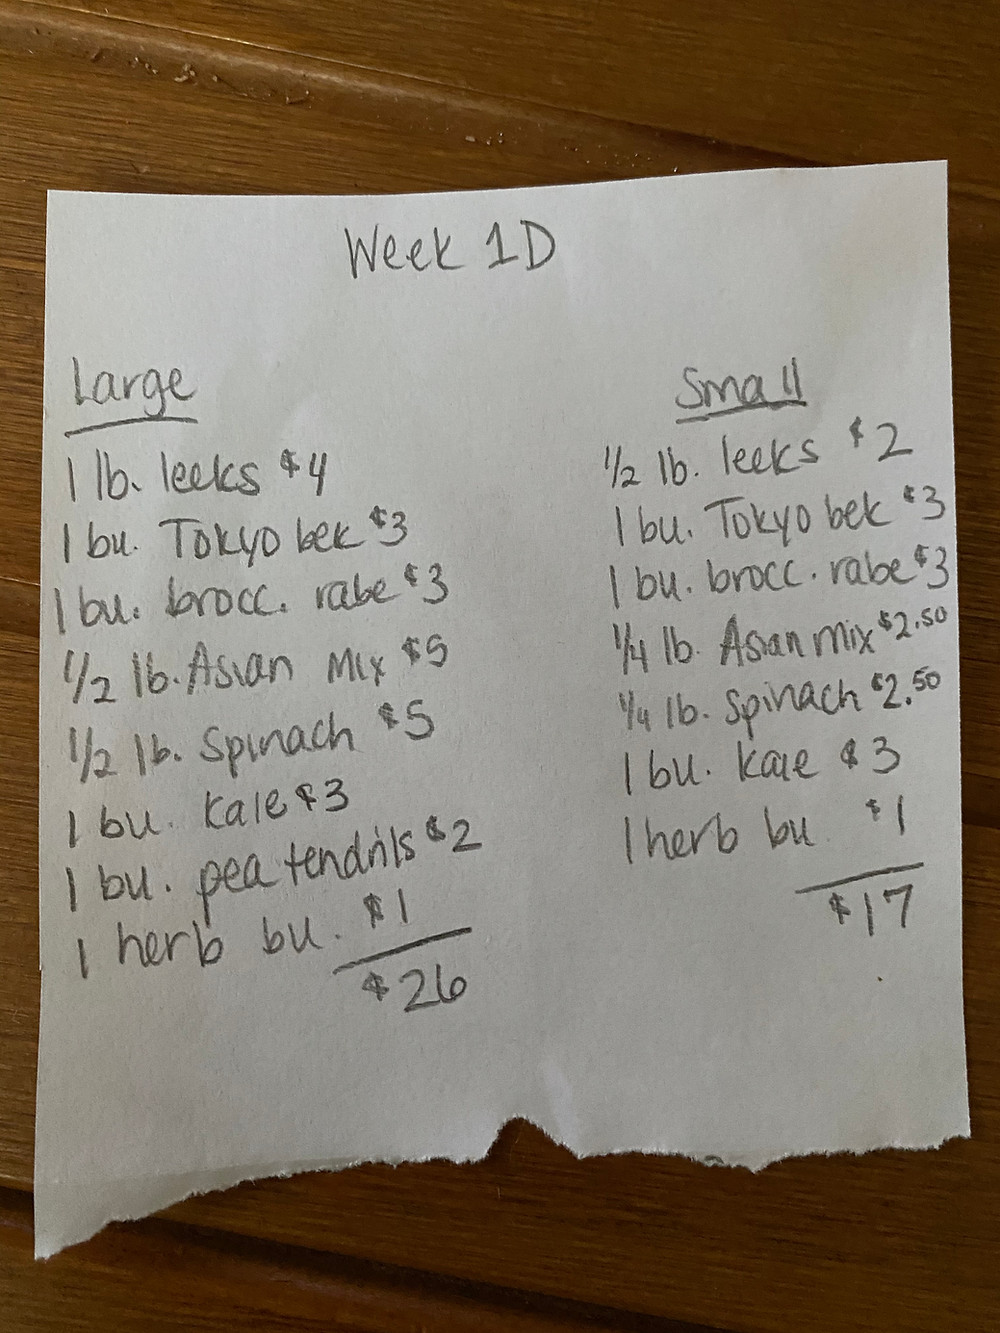 Week 1D
Large
1 lb. leeks $4
1 bu. Tokyo bek $3
1 bu. brocc. rabe $3
1/2 lb. Asian Mix $5
1/2 lb. Spinach $5
1 bu. kale $3
1 bu. pea tendrils $2
1 herb bu. $1
$26
Small
1/2 lb. leeks $2
1 bu. Tokyo bek $3
1 bu. brocc. rabe $3
1/4 lb. Asian mix $2.50
1/4 lb. Spinach $2.50
1 bu. kale $3
1 herb bu $1
$17